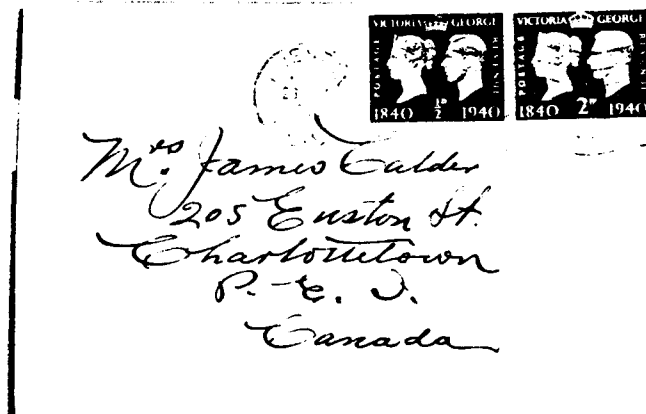 VICTORIA GEORGE
POSTAGE REVENUE
1840 ½D 1940
VICTORIA GEORGE
POSTAGE REVENUE
1840 2D 1940
Mrs. James Calder
205 Euston St.
Charlottetown
P. E. I.
Canada